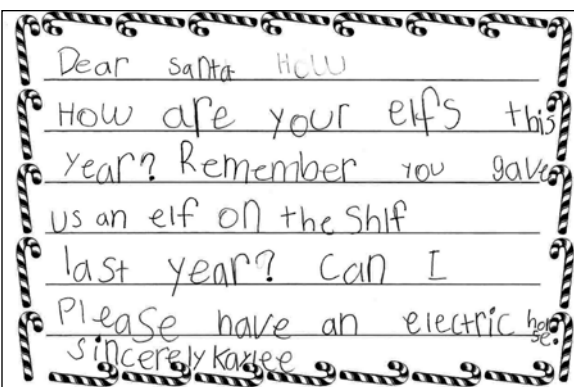 Dear santa How
How are your elfs this
year? Remember you gave
us an elf on the Shlf
last year? Can I
Please have an electric horse.
sincerely Kaylee